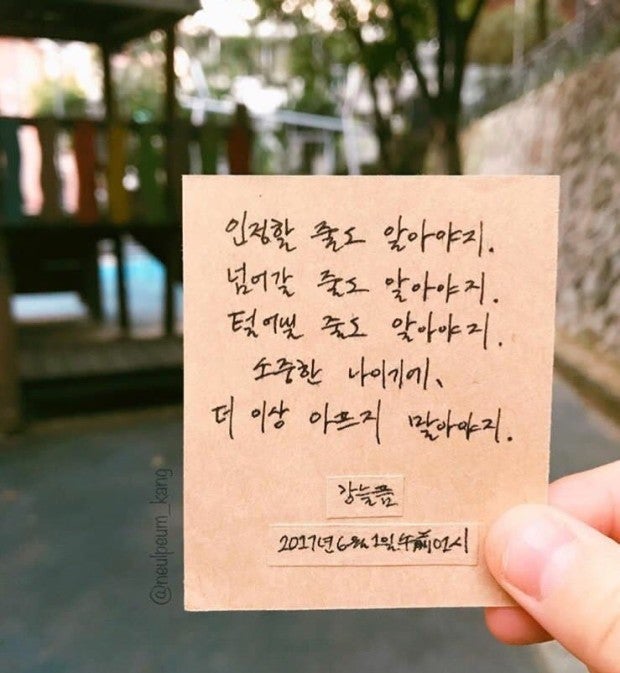 인정할 줄도 알아야지.
넘어갈 줄도 알아야지.
털어낼 줄도 알아야지.
소중한 나이기에,
더 이상 아프지 말아야지.
강늘품
2017년 6월 1일 午前 01시
@neulpeum_kang